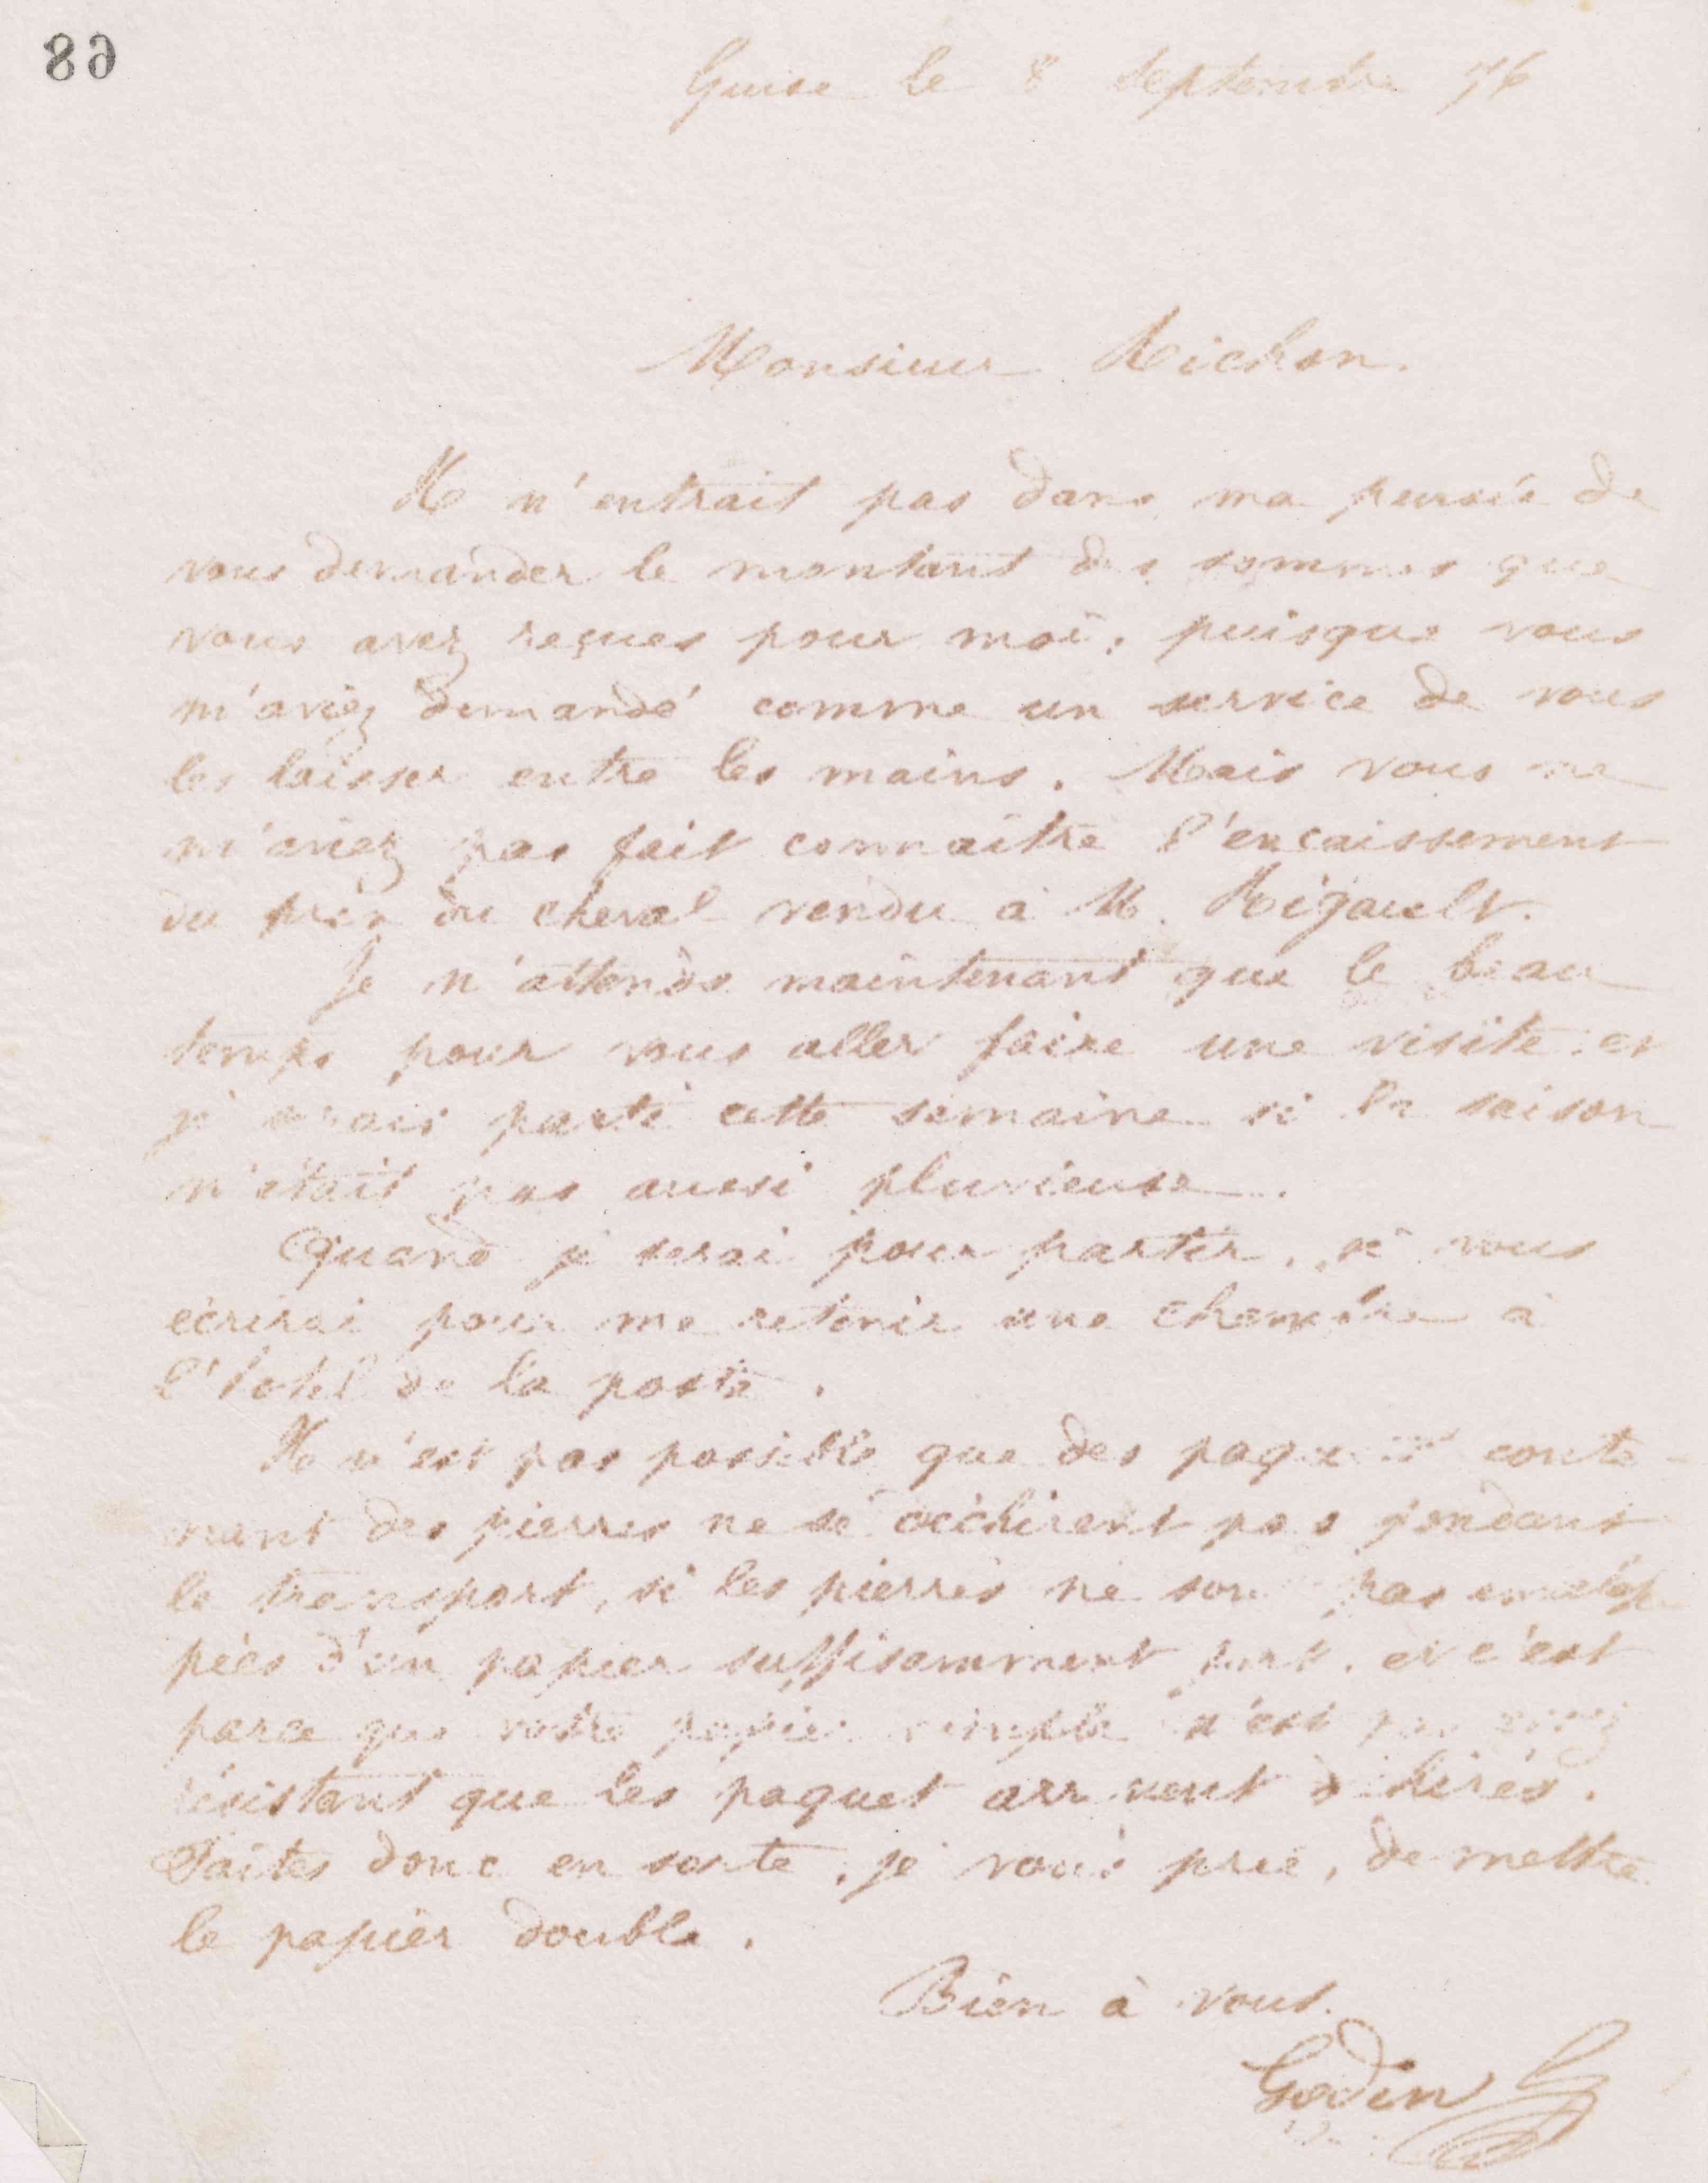 89
Guise le 8 Septembre 76
Monsieur Richon.
Il n'entrait pas dans ma pensée de
vous demander le montant des sommes que
vous avez reçues pour moi, puisque vous
m'aviez demandé comme un service de vous
les laisser entre les mains. Mais vous ne
m'aviez pas fait connaître l'encaissement
du prix du cheval vendu à M. Rigault.
Je n'attends maintenant que le beau
temps pour vous aller faire une visite et
je serais parti cette semaine si la saison
n'était pas aussi pluvieuse.
Quand je serai pour partir, je vous
écrirai pour me retenir une chambre à
l'hôtel de la poste.
Il n'est pas possible que des paquets conte-
nant des pierres ne se déchirent pas pendant
le transport, si les pierres ne sont pas envelop-
pées d'un papier suffisamment fort, et c'est
parce que votre papier simple n'est pas assez
résistant que les paquet arrivent déchirés.
Faites donc en sorte, je vous prie, de mettre
le papier double.
Bien à vous.
Godin